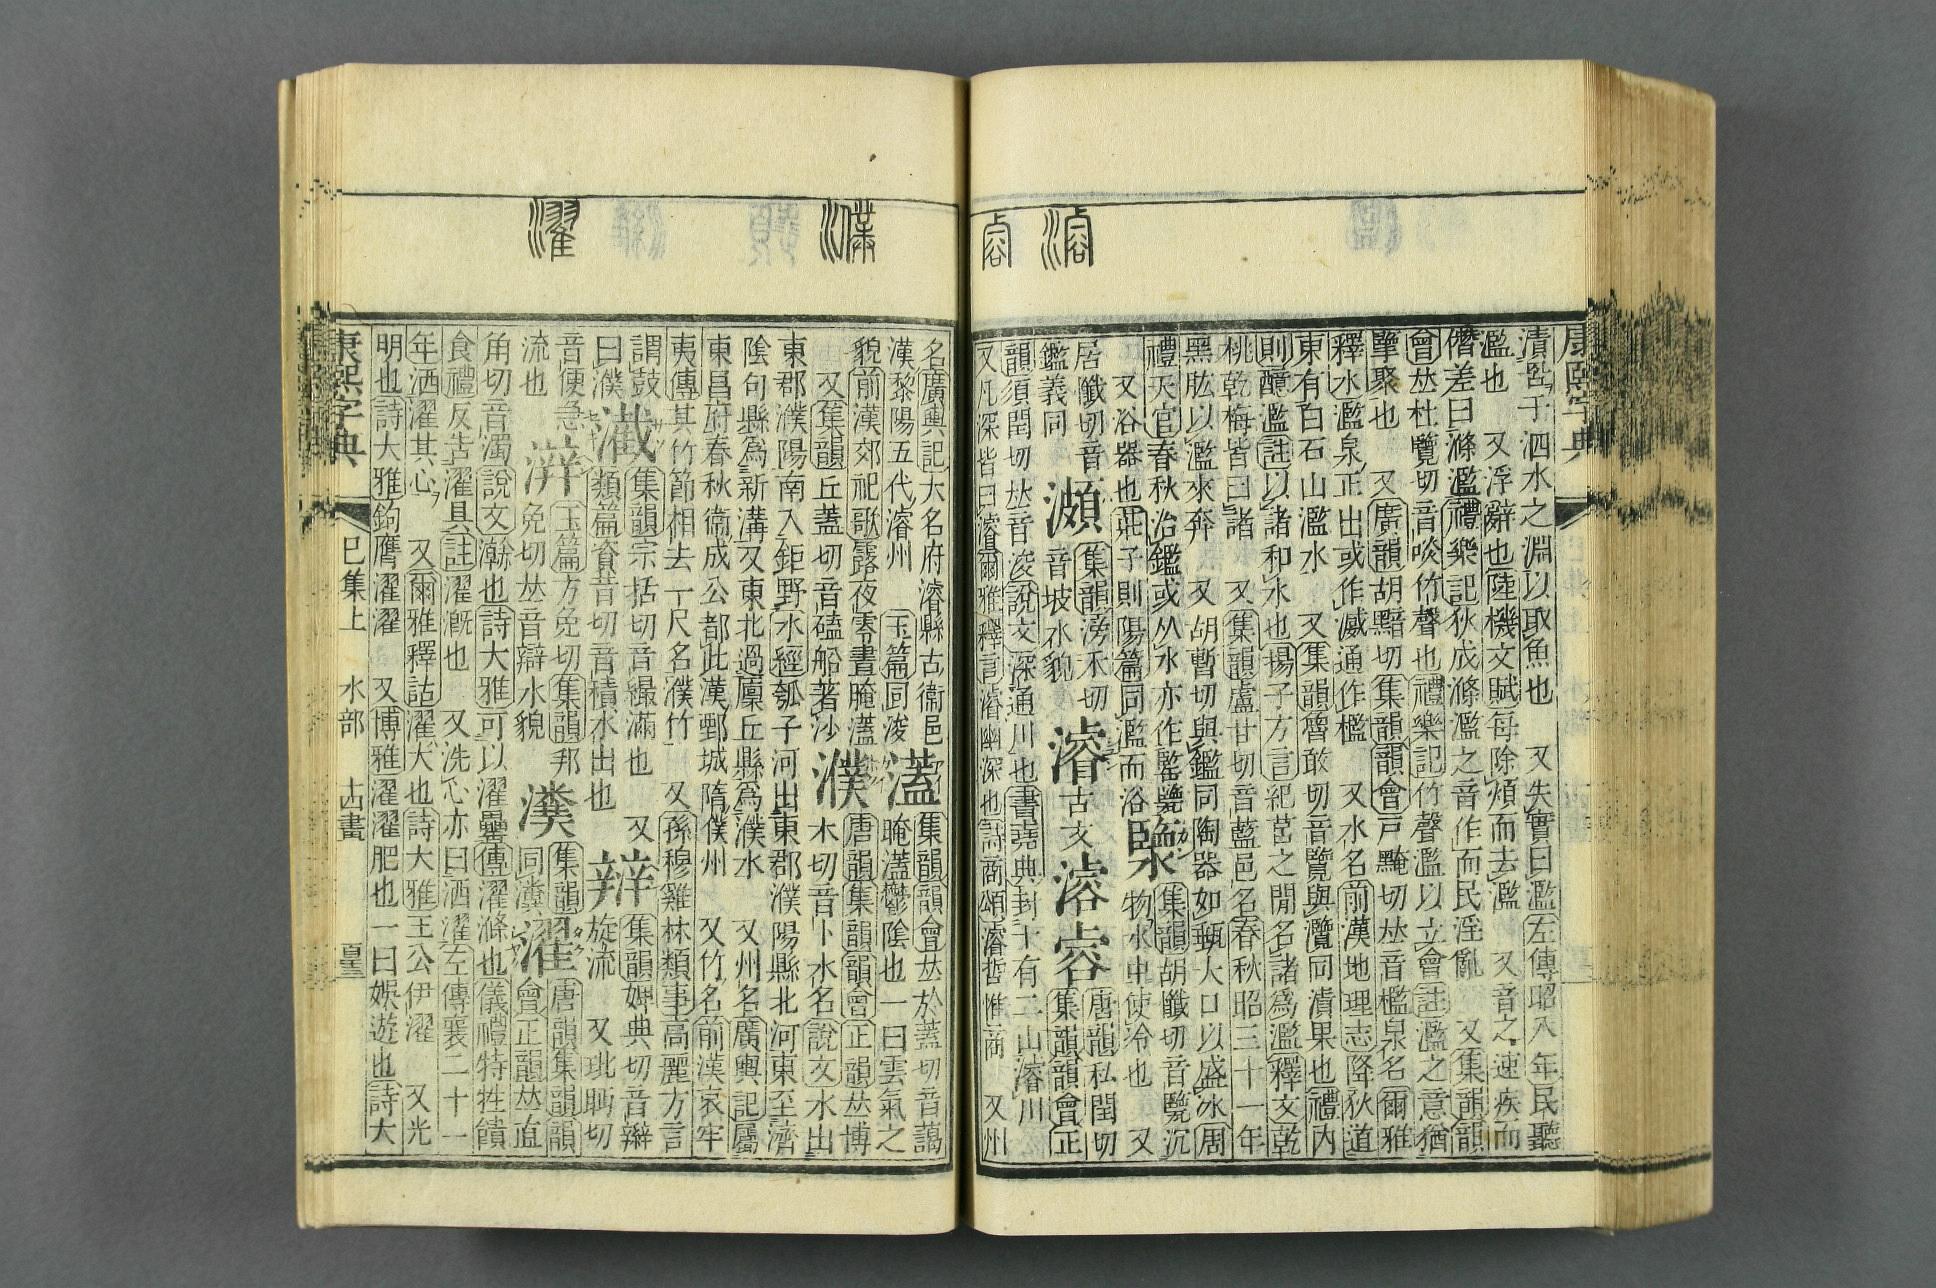 濬
睿
康熙字典
漬罟于泗水之淵以取魚也 又失實曰濫左傳昭八年民聽
濫也 又浮辭也陸機文賦每除煩而去濫 又音之速疾而
僭差曰滌濫禮樂記狄成滌濫之音作而民淫亂 又集韻韻
會𠀤杜覽切音啖竹聲也禮樂記竹聲濫以立會註濫之意猶
擥聚也 又廣韻胡黤切集韻韻會戸黤切𠀤音檻泉名爾雅
釋水濫泉正出或作㵖通作檻 又水名前漢地理志降狄道
東有白石山濫水 又集韻魯敢切音覽與灠同漬果也禮內
則醷濫註以諸和水也揚子方言紀莒之閒名諸爲濫釋文乾
桃乾梅皆曰諸 又集韻盧甘切音藍邑名春秋昭三十一年
黑肱以濫來奔 又胡暫切與鑑同陶器如甀大口以盛冰周
禮天官春秋治鑑或从水亦作
集韻胡懺切音覽沉
又浴器也莊子則陽篇同濫而浴
物水中使冷也 又
居懺切音
鑑義同
瀕
集韻滂禾切
音坡水貌
濬
古文
濬
睿
唐韻私閏切
集韻韻會正
韻須閏切𠀤音浚說文深通川也書堯典封十有二山濬川
又凡深皆曰濬爾雅釋言濬幽深也詩商頌濬哲惟商 又州
濮
濯
名廣輿記大名府濬縣古衞邑
漢黎陽五代濬州 玉篇同浚
濭
集韻韻會𠀤於蓋切音藹
晻濭鬱陰也一曰雲氣之
貌前漢郊祀歌露夜零晝晻濭
又集韻丘蓋切音磕船著沙
濮
唐韻集韻韻會正韻𠀤博
木切音卜水名說文水出
東郡濮陽南入鉅野水經瓠子河出東郡濮陽縣北河東至濟
陰句縣爲新溝又東北過廩丘縣爲濮水 又州名廣輿記屬
東昌府春秋衞成公都此漢鄄城隋濮州 又竹名前漢哀牢
夷傳其竹節相去一尺名濮竹 又孫穆雞林類事高麗方言
謂鼓
曰濮
濈
集韻宗括切音繓滿也 又
類篇資昔切音積水出也
辧
集韻婢典切音辯
旋流 又玭眄切
音便急
流也
㵷
玉篇方免切集韻邦
免切𠀤音辯水貌
瀵
集韻
同瀵
濯
唐韻集韻韻
會正韻𠀤直
角切音濁說文瀚也詩大雅可以濯罍傳濯滌也儀禮特牲饋
食禮反告濯具註濯漑也 又洗心亦曰洒濯左傳襄二十一
年洒濯其心 又爾雅釋詁濯大也詩大雅王公伊濯 又光
明也詩大雅鉤膺濯濯 又博雅濯濯肥也一曰娛遊也詩大
康熙字典 巳集上 水部 十四畫